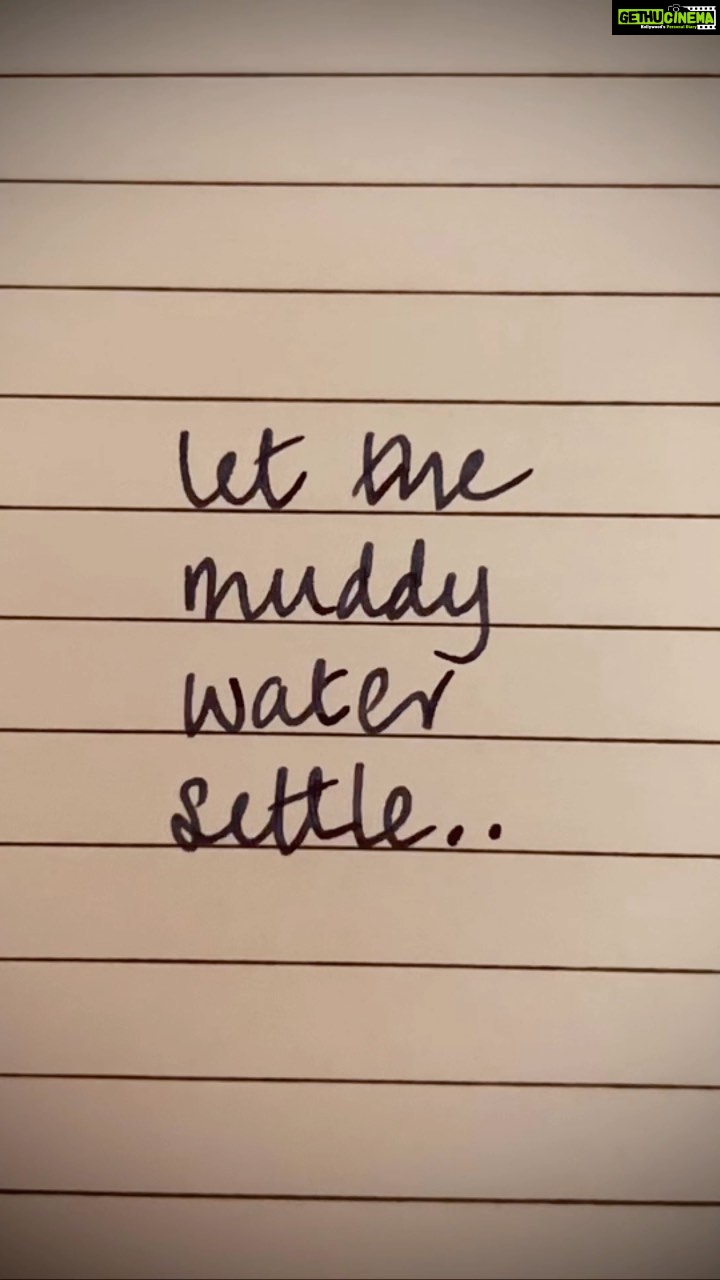 GETHUCINEMA
Kollywood's Personal Diary
let the
muddy
water
settle..